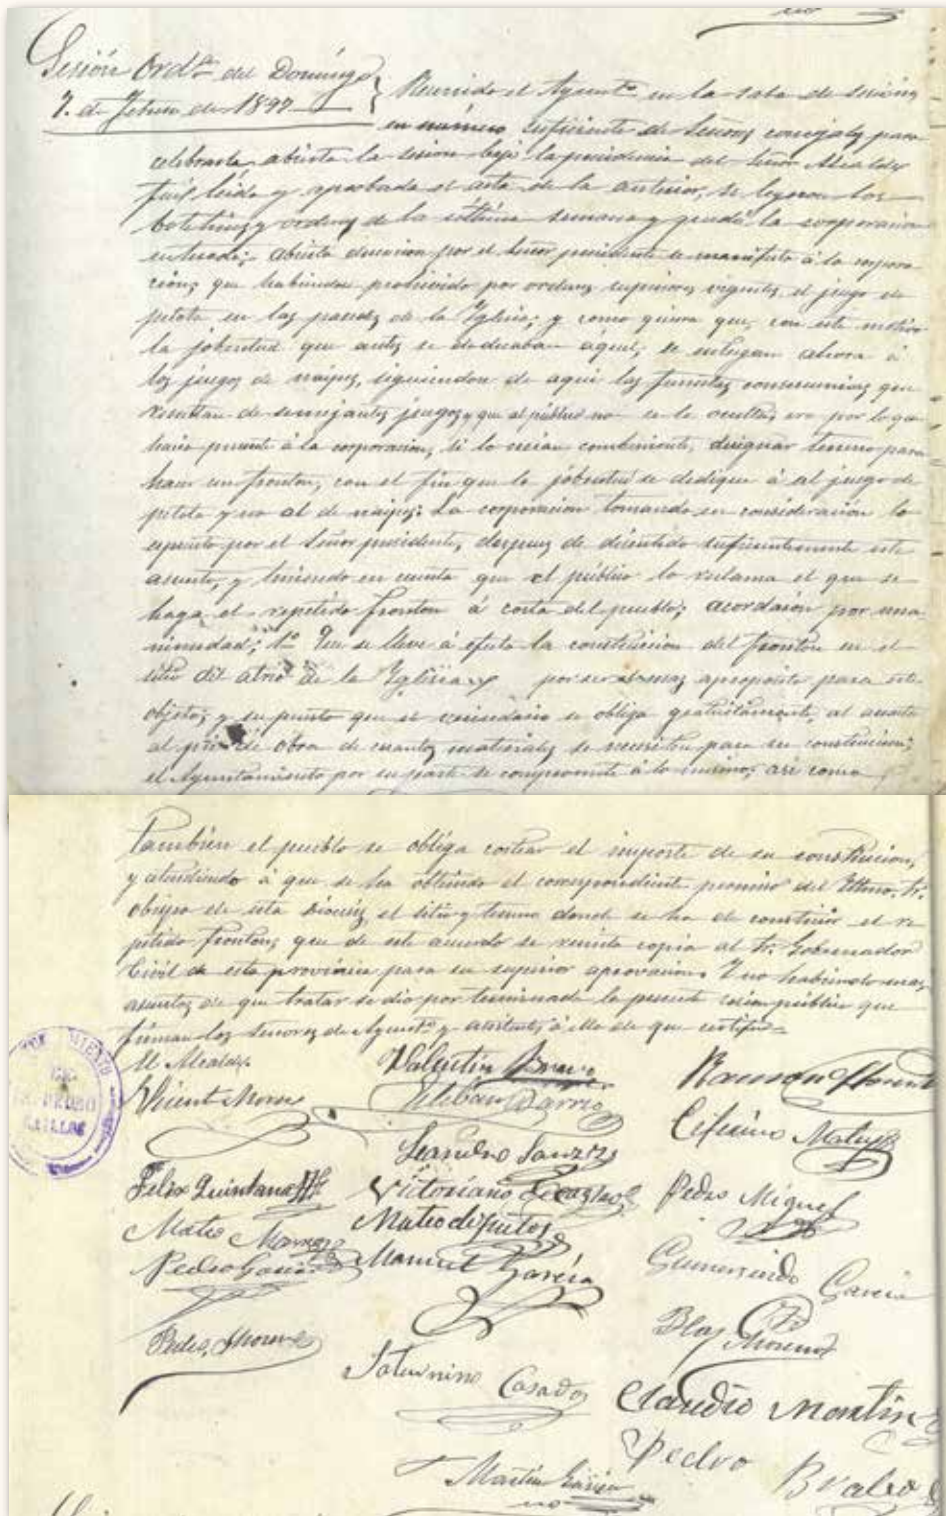 Sesión Ordª del Domingo
7. de Febrero de 1897
Reunido el Ayuntº en la sala de sesiones
en número suficiente de Señores concejales para
celebrarla, abierta la sesion bajo la presidencia del Señor Alcalde
fué leida y aprobada el acta de la anterior, se leyeron los
boletines y ordenes de la última semana y quedó la corporacion
enterada; abierta discucion por el Señor presidente se manifestó á la corpora
cion; que habiendose prohivido por ordenes superiores vigentes, el juego de
pelota en las paredes de la Yglesia; y como quiera que, con este motivo
la jobentud que antes se dedicaban á aquel, se entregan ahora á
los juegos de naipes, siguiendose de aqui las funestas consecuencias que
resultan de semejantes juegos y que al público no se le ocultan, era por lo que
hacia presente á la corporacion, si lo creian combeniente, designar terreno para
hacer un fronton, con el fin que la jobentud se dedique á al juego de
pelota y no al de naipes: La corporacion tomando en consideracion lo
expuesto por el Señor presidente, despues de discutido suficientemente este
asunto, y teniendo en cuenta que el público lo reclama el que se
haga el repetido fronton á costa del pueblo; acordaron por una
nimidad; 1º Que se lleve á efecto la construccion del fronton en el
sitio del atrio de la Yglesia por ser el mas apropósito para este
objeto; y supuesto que el vecindario se obliga gratuitamente, al acarreo
al pie de obra de cuantos materiales se necesiten para su construccion;
el Ayuntamiento por su parte se compromete á lo mismo; asi como
también el pueblo se obliga costear el importe de su construcion,
y atendiendo á que se ha obtenido el correspondiente permiso del Iltmo. Sr.
obispo de esta Diocesis el sitio y terreno donde se ha de construir el re
petido fronton; que de este acuerdo se remita copia al Sr. Gobernador
Civil de esta provincia para su superior aprovacion. Y no habiendo mas
asuntos de que tratar se dió por terminada la presente sesion pública que
firman los Señores de Ayuntº y asistentes á ella de que certifico=
El Alcalde.
Vicente Moreno
Valentin Bravo
Ramon Llorente
Esteban Barrio
Ceferino Mateos
Leandro Sanz
Felix Quintana
Victoriano
Pedro Miguel
Mateo
Mateo de frutos
Pedro Garcia
Manuel García
Gumersindo Garcia
Pedro, Moreno
Blas Moreno
Saturnino Casado
Claudio Montin
Pedro Bravo
Martin García
DE
S. PEDRO
GAILLOS